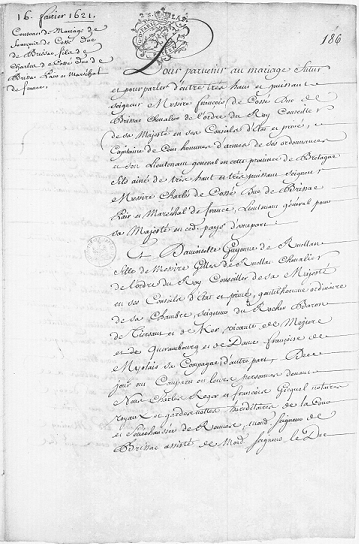 16. fevrier 1621.
Contract de Mariage de
françois de Cossé Duc
de Brissac, fils de
Charles de Cossé Duc de
Brissac Pair et Maréchal
de france.
186
Pour parvenir au mariage futur
et pour parler d'entre tres haut et puissant
seigneur Messire françois de Cossé Duc de
Brissac Chevalier de l'ordre du Roy Conseiller
de sa Majesté en ses Conseils d'Etat et privé,
Capitaine de Cent hommes d'armes de ses ordonnances
et son Lieutenant general en cette province de Bretagne
fils ainé de tres haut et tres puissant seigneur
Messire Charles de Cossé Duc de Brissac
Pair et Maréchal de france, Lieutenant général pour
sa Majesté en ced. pays d'une part.
Et Guyonne de Ruellan
fille de Messire Gilles de Ruellan Chevalier
de l'ordre du Roy Conseiller de sa Majesté
en ses Conseils d'Etat et privé, gentilhomme ordinaire
de sa Chambre, seigneur du Rocher Baron
de Tiercent et de
et de et de Dame françoise de
Myolais sa Compagne d'autre part. Ont
jour ou Comparu en leurs personnes devant
Nous Charles Roger et francois Gicquel notaires
royaux et gardes nottes hereditaires de la Cour
et Senechaussée de Rennes, mond. seigneur de
Brissac assisté de Mond. seigneur le Duc